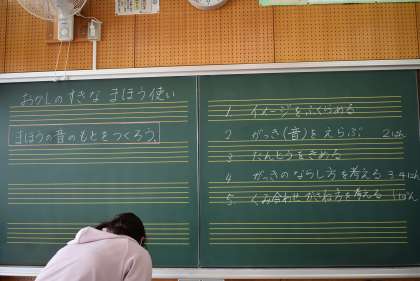 おかしのすきな まほう使い
まほうの音のもとをつくろう。
1. イメージをふくらめる
2 がっき(音)をえらぶ 2はん
3 たんとうをきめる
4 がっきのならし方を考える 3.4はん
5. くみ合わせ かさね方を考える 1はん